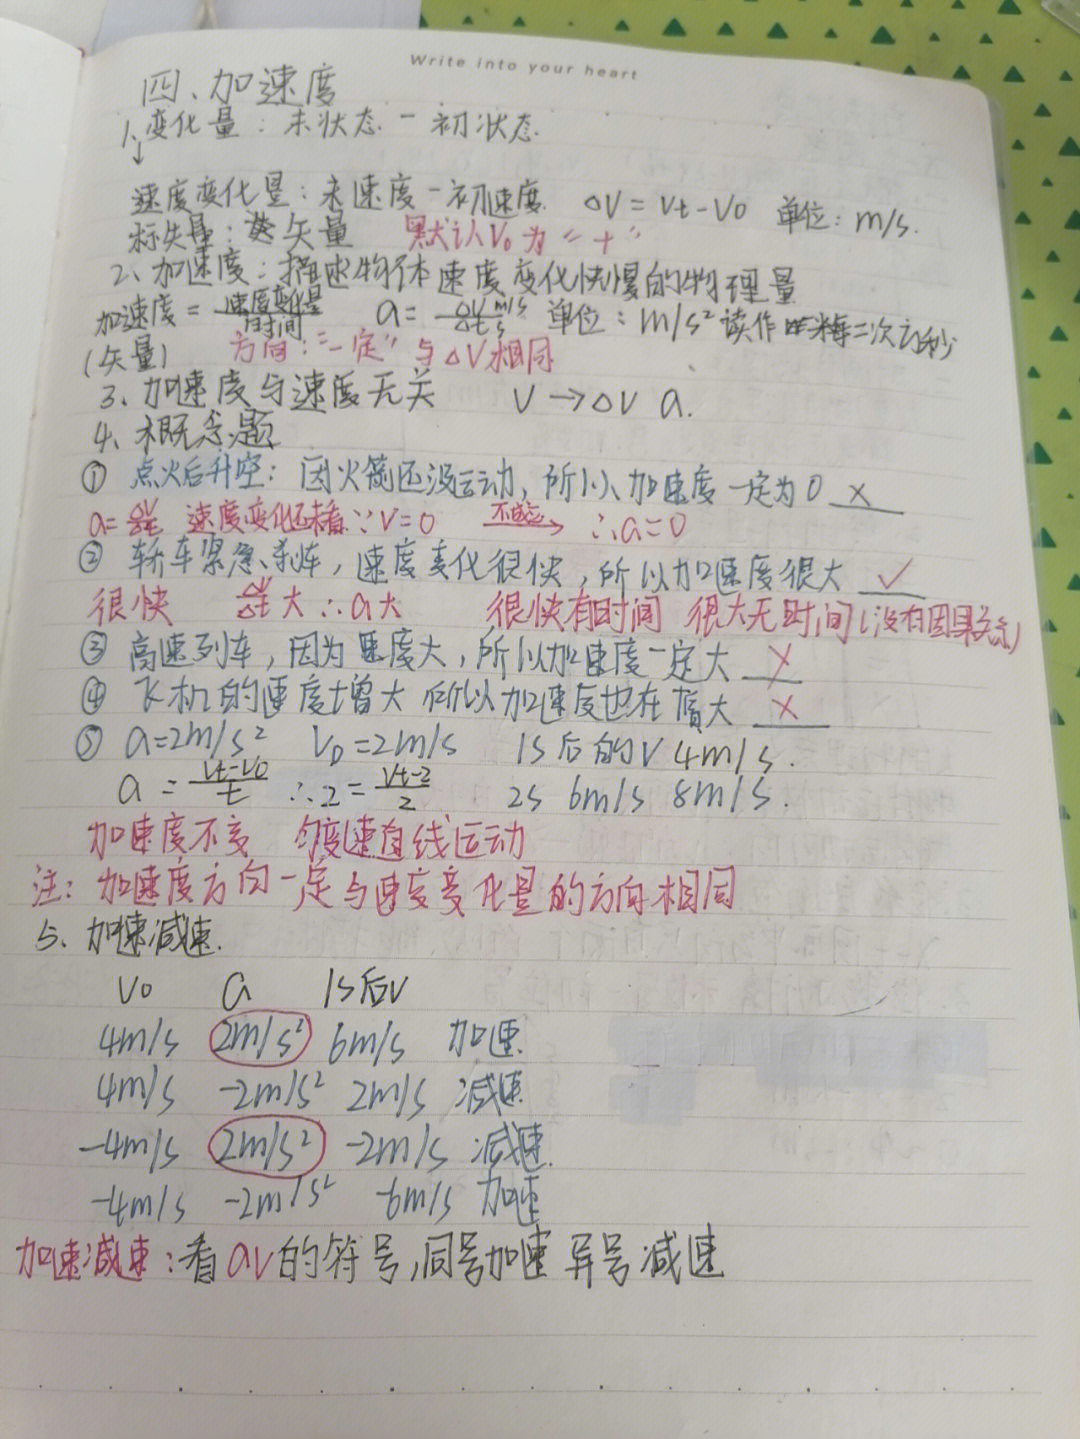 Write into your heart
四、加速度
1、变化量：末状态－初状态
↓
速度变化量：末速度－初速度 ΔV=Vt-V0 单位：m/s.
标矢量：矢量 默认V0为“+”
2、加速度：描述物体速度变化快慢的物理量
加速度=速度变化量/时间 a=ΔV m/s/Δt s 单位：m/s² 读作 米每二次方秒
(矢量) 方向：“一定”与ΔV相同
3、加速度与速度无关 V→ΔV a.
4、概念题
① 点火后升空：因火箭还没运动，所以加速度一定为0 ×
a=ΔV/Δt 速度变化还未看∵V=0 → ∴a=0
② 轿车紧急刹车，速度变化很快，所以加速度很大 ✓
很快 ΔV/Δt大∴a大 很快有时间 很大无时间(没有因果关系)
③ 高速列车，因为速度大，所以加速度一定大 ×
④ 飞机的速度增大 所以加速度也在增大 ×
⑤ a=2m/s² V0=2m/s 1s后的V 4m/s.
a=Vt-V0/t ∴2=Vt-2/2 2s 6m/s 8m/s.
加速度不变 匀变速直线运动
注：加速度方向一定与速度变化量的方向相同
5、加速减速.
V0 a 1s后V
4m/s 2m/s² 6m/s 加速
4m/s -2m/s² 2m/s 减速
-4m/s 2m/s² -2m/s 减速
-4m/s -2m/s² -6m/s 加速
加速减速：看aV的符号，同号加速 异号减速